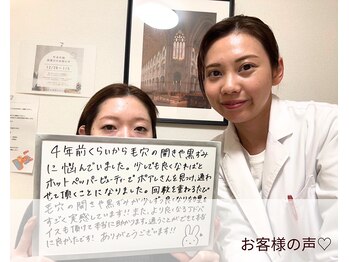 4年前くらいから毛穴の開きや黒ずみ
に悩んでいました。少しでも良くなればと
ホットペッパービューティーでポアレさんを見つけ、通わ
せて頂くことになりました。回数を重ねるたび
毛穴の開きや黒ずみが少しずつ良くなりのを
すごく実感しています!!また、より良くなるアドバ
イスも頂けて本当に助かります。通うことができて本当
に良かったです! ありがとうございます!!
お客様の声♡